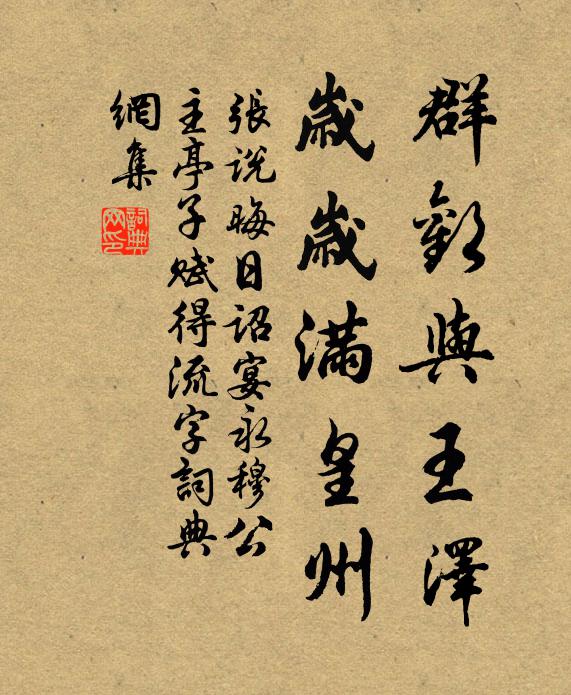 群歡與王澤
歲歲滿皇州
張說晦日詔宴永穆公
主亭子賦得流字詞典
網集
詞典网印